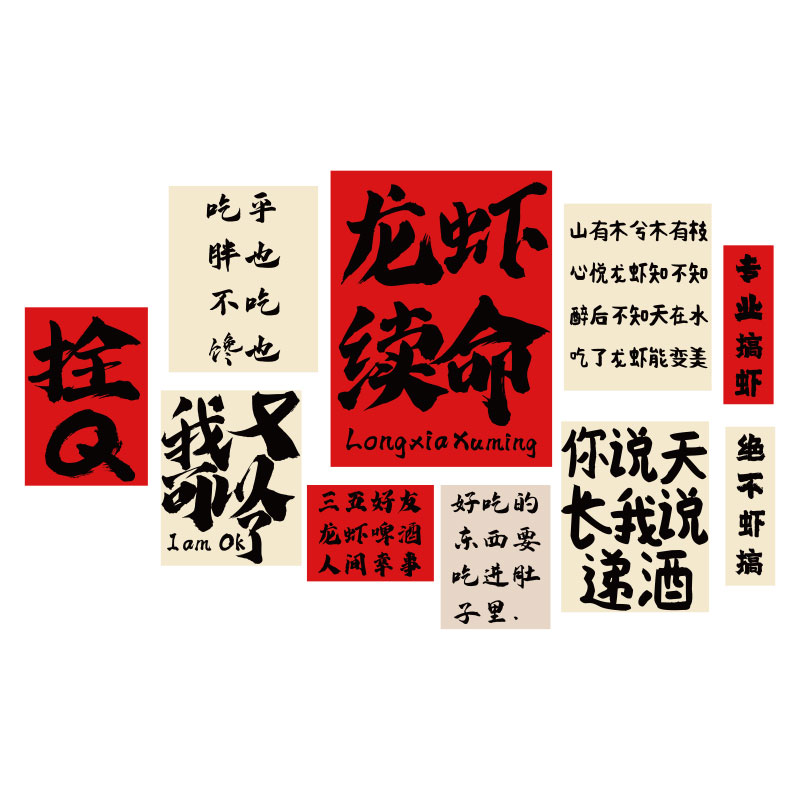 吃乎
胖也
不吃
馋也
龙虾
续命
Longxia Xuming
山有木兮木有枝
心悦龙虾知不知
醉后不知天在水
吃了龙虾能变美
专
业
搞
虾
拴
Q
我又
可以
了
I am Ok
三五好友
龙虾啤酒
人间幸事
好吃的
东西要
吃进肚
子里.
你说天
长我说
递酒
绝
不
虾
搞